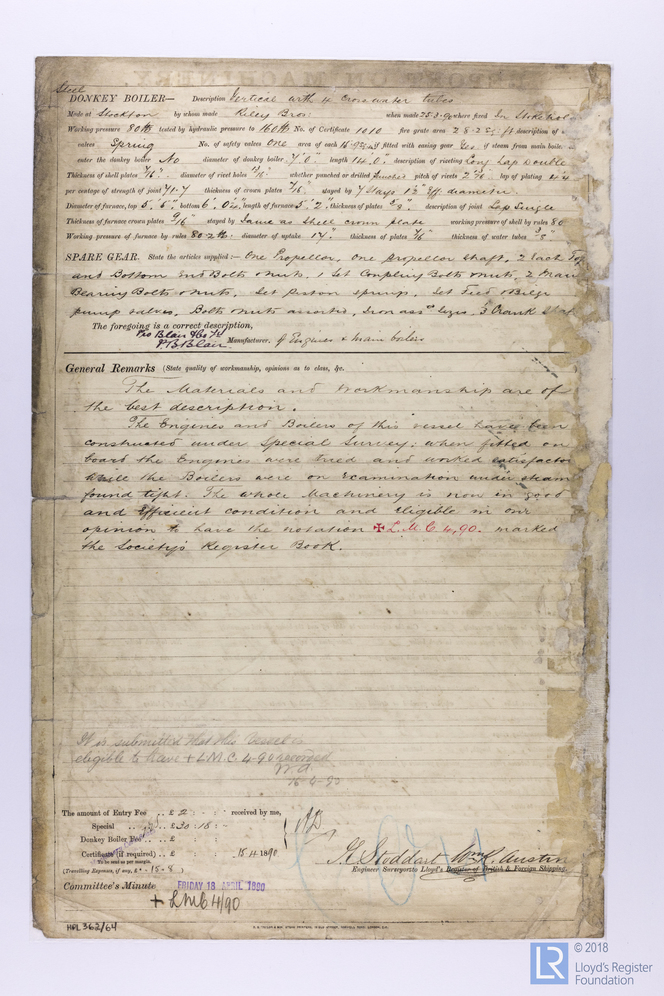 Steel
DONKEY BOILER— Description Vertical with 4 cross water tubes
Made at Stockton by whom made Riley Bros: when made 25.3.90 where fixed In Stokehol
Working pressure 80 lb tested by hydraulic pressure to 160 lb No. of Certificate 1010 fire grate area 28.2 sq. ft description of
valves Spring No. of safety valves One area of each if fitted with easing gear Yes if steam from main boile
enter the donkey boiler No diameter of donkey boiler 7'0" length 14.0" description of riveting Long Lap Double
Thickness of shell plates 7/16" diameter of rivet holes whether punched or drilled punched pitch of rivets lap of plating
per centage of strength of joint 71.7 thickness of crown plates 7/16" stayed by 7 Stays 1½" Eff. diameter.
Diameter of furnace, top 5'.6" bottom length of furnace 5'.2" thickness of plates description of joint Lap Single
Thickness of furnace crown plates 9/16" stayed by Same as shell crown plate working pressure of shell by rules 80
Working pressure of furnace by rules 80.2 lb diameter of uptake 17" thickness of plates 7/16 thickness of water tubes 3/8"
SPARE GEAR. State the articles supplied:— One Propellor, One propellor shaft, 2 each Top
and Bottom End Bolts & nuts, 1 Set Coupling Bolts & nuts, 2 Main
Bearing Bolts & nuts, Set Piston springs, Set Feed & Bilge
pump valves, Bolts & nuts assorted, Iron assd sizes, 3 Crank Shaf
The foregoing is a correct description,
Pro Blair & Co Ld
P.B. Blair Manufacturer. of Engines & main boilers
General Remarks (State quality of workmanship, opinions as to class, &c.
The Materials and Workmanship are of
the best description.
The Engines and Boilers of this vessel have been
constructed under Special Survey; when fitted on
board the Engines were tried and worked satisfactor
while the Boilers were on examination under steam
found tight. The whole Machinery is now in good
and Efficient condition and eligible in our
opinion to have the notation ✠ L.M.C. 4,90. marked
the Society's Register Book.
It is submitted that this Vessel is
eligible to have + L.M.C. 4-90 recorded
16-4-90
The amount of Entry Fee .. £ 2 : : received by me,
Special .. £ 30 : 18 : -
Donkey Boiler Fee .. £ : :
Certificate (if required) .. £ : : 15.4.1890
To be sent as per margin.
(Travelling Expenses, if any, £ - . 15 . 8 )
G. Stoddart Wm R. Austin
Engineer Surveyors to Lloyd's Register of British & Foreign Shipping.
Committee's Minute FRIDAY 18 APRIL 1890
+ LMC 4/90
HPL 362/64
© 2018
LR
Lloyd's Register
Foundation